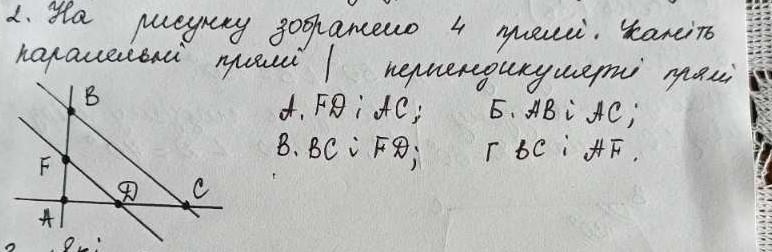 2. На рисунку зображено 4 прямі. Укажіть
паралельні прямі / перпендикулярні прямі
А. FD і AC; Б. AB і AC;
В. BC і FD; Г BC і AF.
B
F
D
C
A